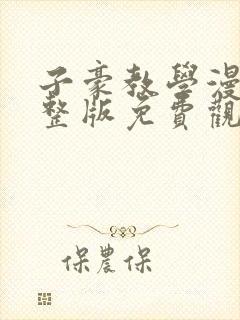 子豪教學漫
整版免費觀
保農保